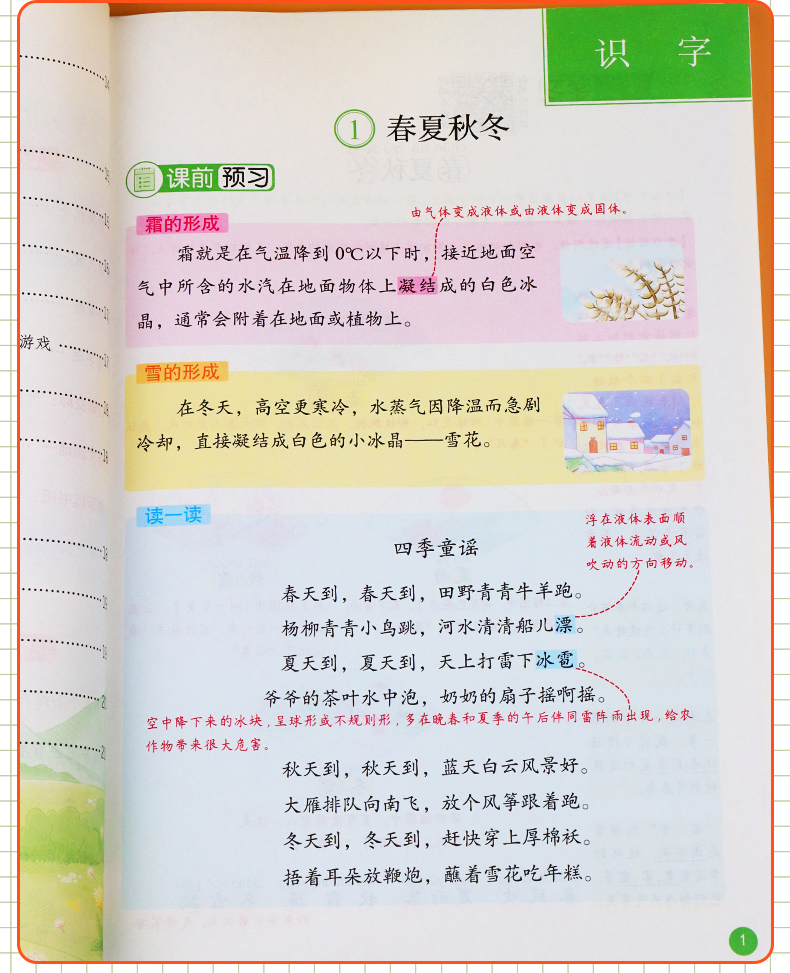 识 字
1 春夏秋冬
课前预习
由气体变成液体或由液体变成固体。
霜的形成
霜就是在气温降到0℃以下时，接近地面空
气中所含的水汽在地面物体上凝结成的白色冰
晶，通常会附着在地面或植物上。
雪的形成
在冬天，高空更寒冷，水蒸气因降温而急剧
冷却，直接凝结成白色的小冰晶——雪花。
读一读
浮在液体表面顺
着液体流动或风
吹动的方向移动。
四季童谣
春天到，春天到，田野青青牛羊跑。
杨柳青青小鸟跳，河水清清船儿漂。
夏天到，夏天到，天上打雷下冰雹。
爷爷的茶叶水中泡，奶奶的扇子摇啊摇。
空中降下来的冰块，呈球形或不规则形，多在晚春和夏季的午后伴同雷阵雨出现，给农
作物带来很大危害。
秋天到，秋天到，蓝天白云风景好。
大雁排队向南飞，放个风筝跟着跑。
冬天到，冬天到，赶快穿上厚棉袄。
捂着耳朵放鞭炮，蘸着雪花吃年糕。
游戏
1